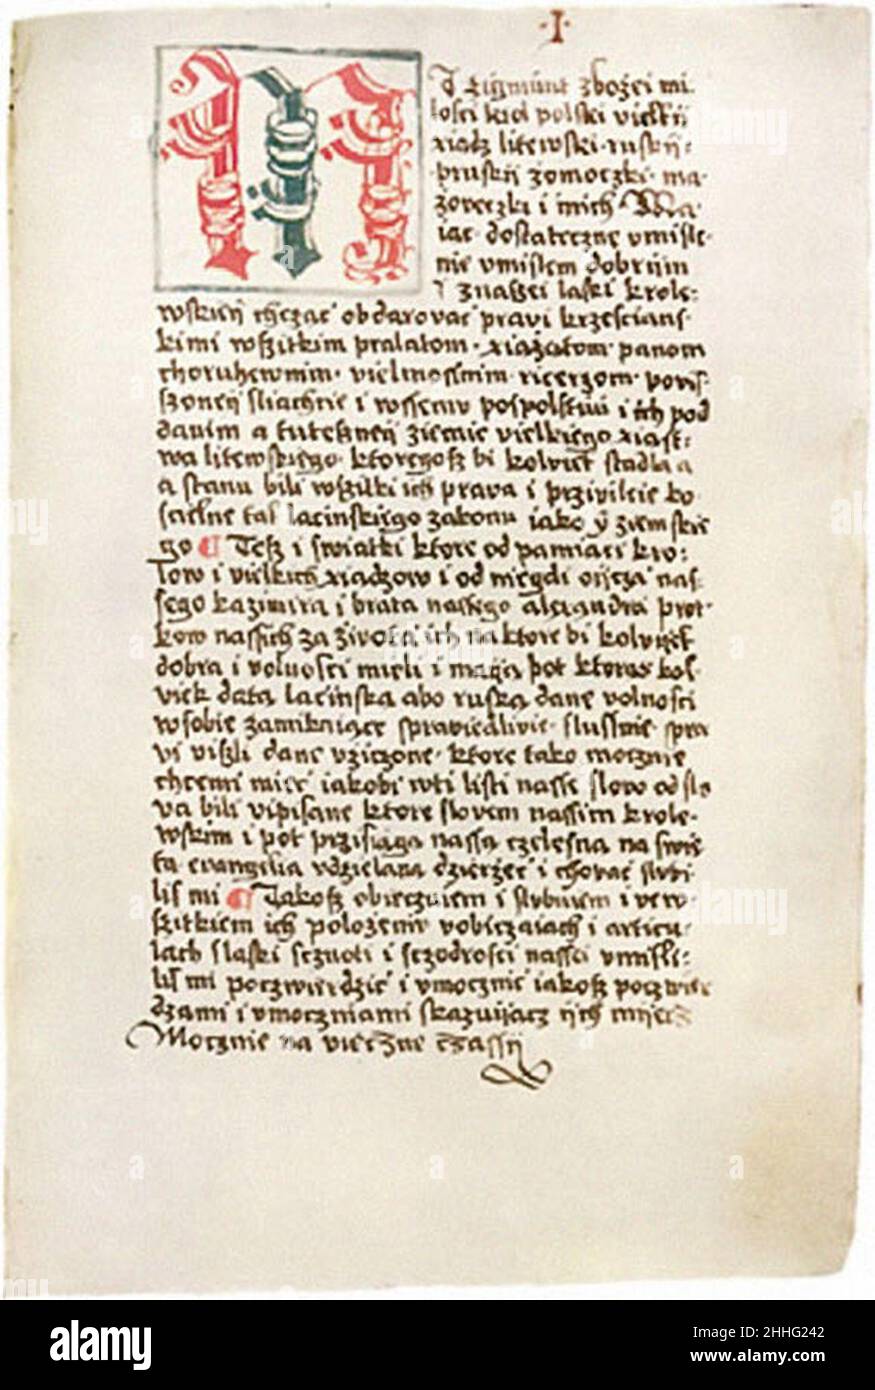 ·I·
J Zigmunt z bożei mi
łości krol polski vielkij
xiądz litewski · ruskij ·
pruskij żomoczki · ma
zoveczki i inich Ma
iąc dostateczne vmisle
nie vmislem dobrijm
y znaszei laski krole:
wskieij chcząc obdarovac pravi krzescians
kimi wszitkim pralatom · xiążatom · panom
choruhewnim · vielmosnim · ricerzom · povis
szoneij sliachcie i wssemv pospolstwu i ich pod
danim a tuteszneij ziemie vielkiego xiast:
wa litewskiego · ktoregosz bi kolviek stadla a
a stanu bili wszitki ich prava i przivileie ko
scielne tak lacinskiego zakonu iako y ziemskie
go ¶ Tesz i swiatki ktore od pamiaci kro:
low i vielkich xiadzow i od niegdi oijcza nas
sego kazimira i brata nassego alexandra prot
kow nassich za zivota ich na ktore bi kolviek
dobra i volnosci mieli i maija pod ktoras kol
viek data lacinska abo ruska dane volnosci
w sobie zamikaiące spraviedlivie · slusnie · spra
vi viszli dane vziczone · ktore tako mocznie
chcemi miec iakobi w ti listi nasse slowo od slo
va bili vipisane ktore slovem nassim krole-
wskim i pod przisiaga nassa czelesna na swie
ta evangelia vdzielana dzierżec i chovac slubi
lismi ¶ Jakosz obieczuiem i slubuiem i ve w
szitkiem ich polożeniv v obiczaiach i articu
lach z laski scznoti i sczodrosci nassei vmisli:
lismi poczwierdzic i vmocznic iakosz poczwier
dzami i vmoczniami skazuijącz ijch mijecz
Mocznie na vieczne czassij
alamy
Image ID: 2HHG242
www.alamy.com